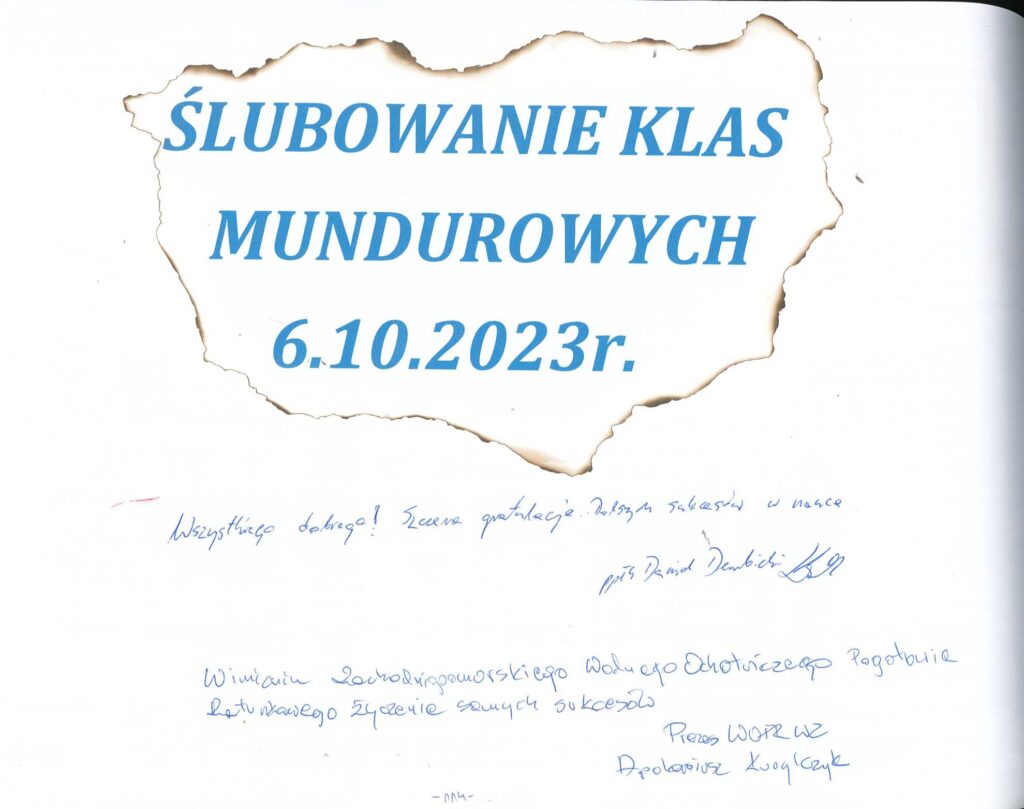 ŚLUBOWANIE KLAS
MUNDUROWYCH
6.10.2023r.
Wszystkiego dobrego! Szczere gratulacje. Dalszych sukcesów w nauce
ppłk Dawid Dembicki
W imieniu Zachodniopomorskiego Wodnego Ochotniczego Pogotowia
Ratunkowego życzenia samych sukcesów
Prezes WOPR WZ
Apoloniusz
-114-